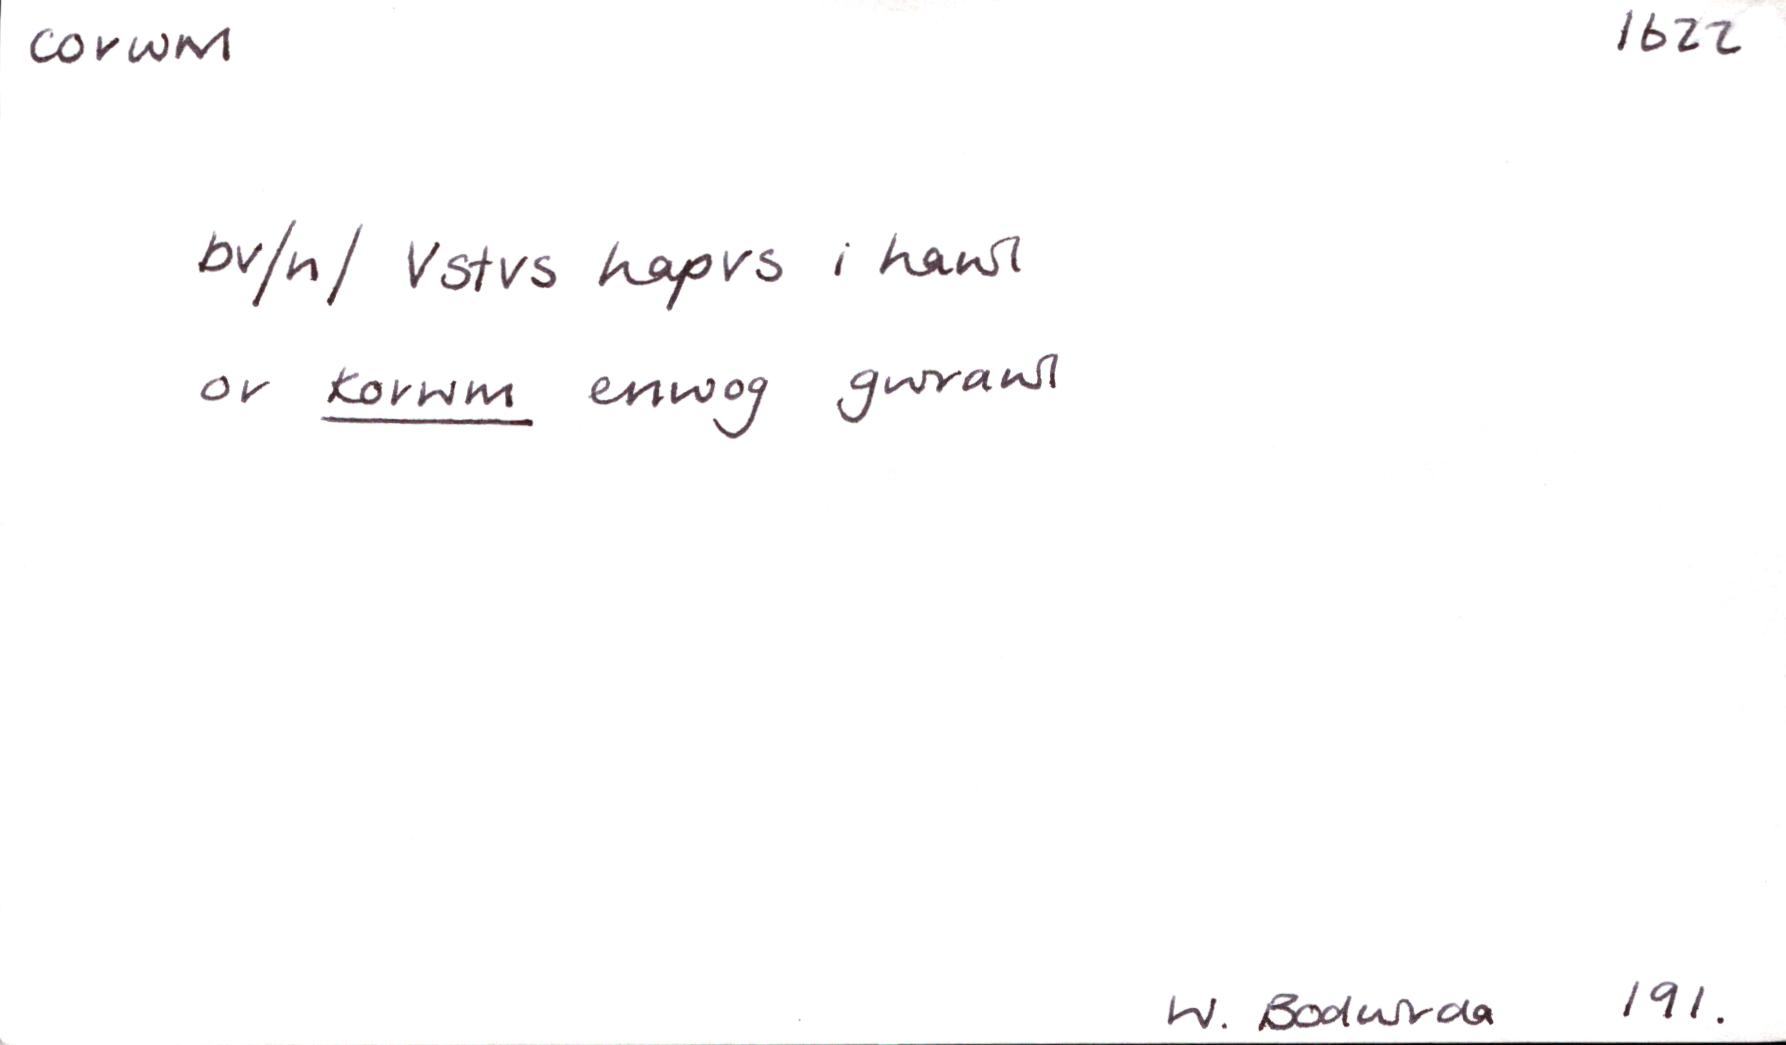 corwm 1622
bv/n/ Vstvs hapvs i hawl
or korwm enwog gwrawl
W. Bodwrda 191.